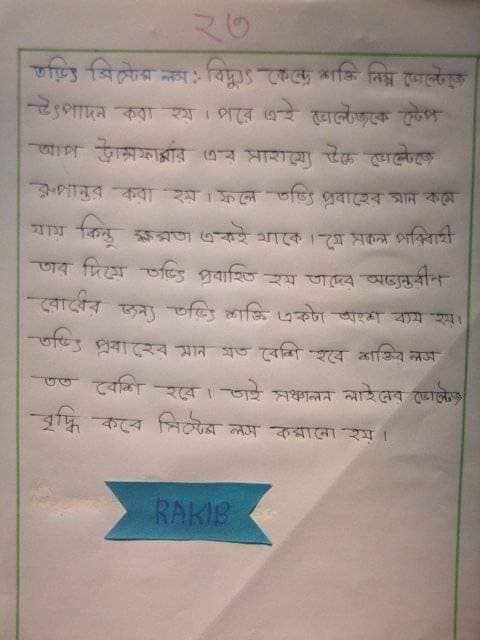 ২৩
তড়িৎ সিস্টেম লস: বিদ্যুৎ কেন্দ্রে শক্তি নিম্ন ভোল্টেজে
উৎপাদন করা হয়। পরে এই ভোল্টেজকে স্টেপ
আপ ট্রান্সফার্মার এর সাহায্যে উচ্চ ভোল্টেজে
রূপান্তর করা হয়। ফলে তড়িৎ প্রবাহের মান কমে
যায় কিন্তু ক্ষমতা একই থাকে। যে সকল পরিবাহী
তার দিয়ে তড়িৎ প্রবাহিত হয় তাদের অভ্যন্তরীন
রোধের জন্য তড়িৎ শক্তি একটা অংশ ব্যয় হয়।
তড়িৎ প্রবাহের মান যত বেশি হবে শক্তির লস
তত বেশি হবে। তাই সঞ্চালন লাইনের ভোল্টেজ
বৃদ্ধি করে সিস্টেম লস কমানো হয়।
RAKIB